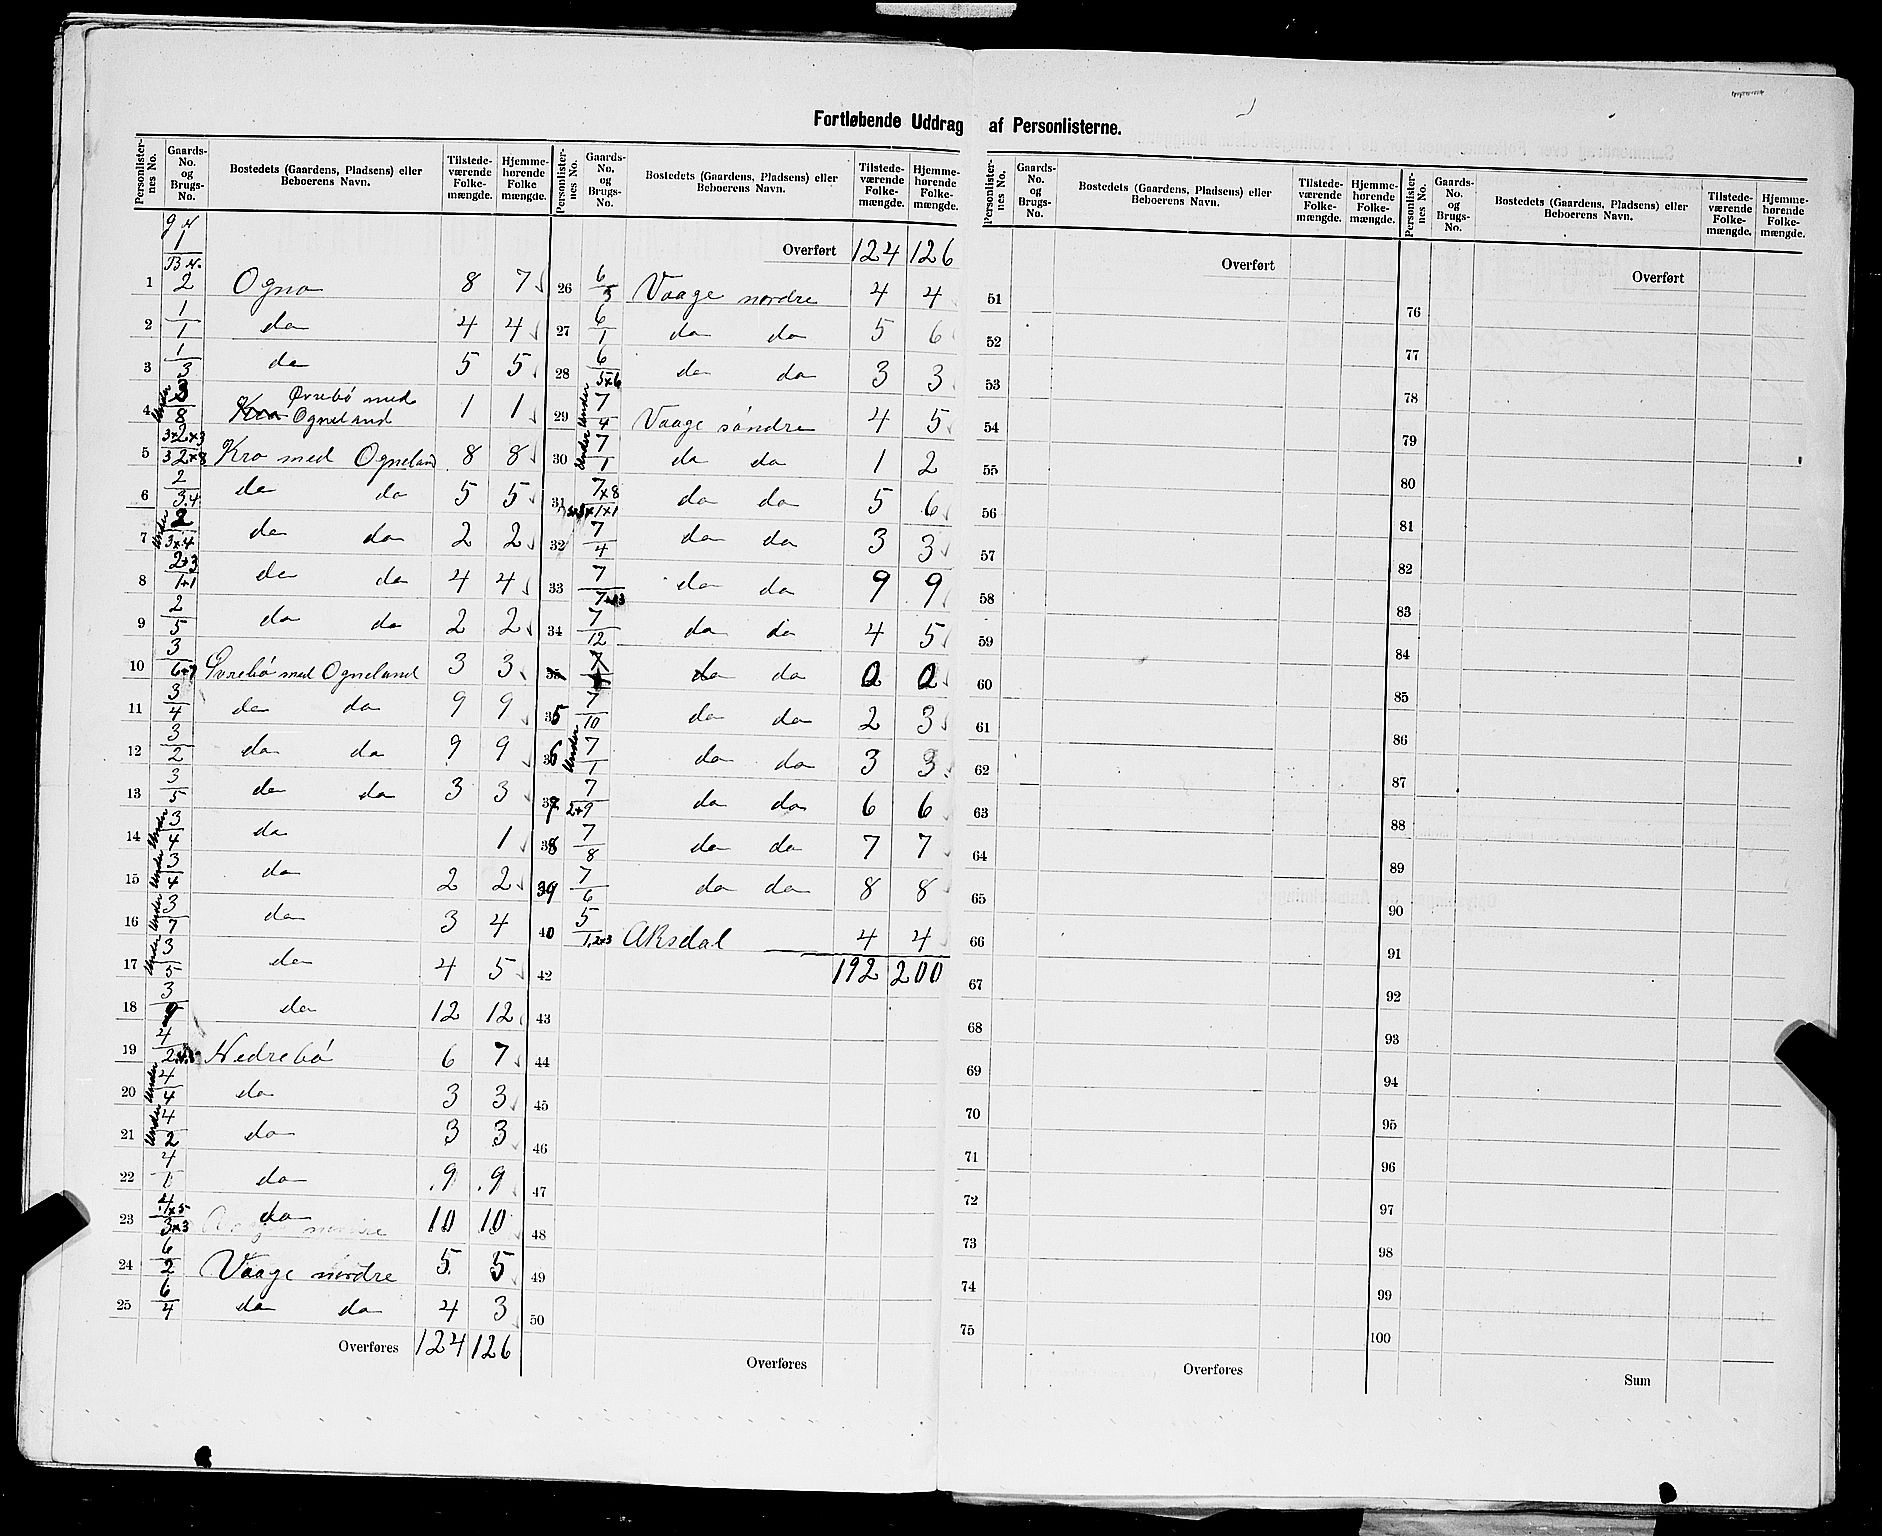 Fortløbende Uddrag af Personlisterne.
Personlister-nes No. | Gaards-No. og Brugs-No. | Bostedets (Gaardens, Pladsens) eller Beboerens Navn. | Tilstede-værende Folke-mængde. | Hjemme-hørende Folke mængde.
g N 1 / B N.
1 | 2 | Ogna | 8 | 7
2 | 1/1 | do | 4 | 4
3 | 1/3 | do | 5 | 5
4 | Under 3/8 | Kro Øvrebö med Ogneland | 1 | 1
5 | 3×2×3 / 32×8 | Kro med Ogneland | 8 | 8
6 | 2/3.4 | do do | 5 | 5
7 | Under 2/3×4 | do do | 2 | 2
8 | 2+3/1+1 | do do | 4 | 4
9 | 2/5 | do do | 2 | 2
10 | 3/6+7 | Øvrebö med Ogneland | 3 | 3
11 | 3/4 | do do | 9 | 9
12 | 3/2 | do do | 9 | 9
13 | 3/5 | do do | 3 | 3
14 | Under 3/4 | do | | 1
15 | Under 3/4 | do | 2 | 2
16 | Under 3/7 | do | 3 | 4
17 | Under 3/5 | do | 4 | 5
18 | 3/9 | do | 12 | 12
19 | 4/2 | Nedrebö | 6 | 7
20 | Under 4/4 | do | 3 | 3
21 | Under 4/2 | do | 3 | 3
22 | 4/1 | do | 9 | 9
23 | 4×5/3×3 | do | 10 | 10
24 | 6/2 | Vaage nordre | 5 | 5
25 | 6/4 | do do | 4 | 3
Overføres 124 126
Personlister-nes No. | Gaards-No. og Brugs-No. | Bostedets (Gaardens, Pladsens) eller Beboerens Navn. | Tilstede-værende Folke-mængde. | Hjemme-hørende Folke-mængde.
Overført 124 126
26 | 6/3 | Vaage nordre | 4 | 4
27 | 6/1 | do do | 5 | 6
28 | 6/5×6 | do do | 3 | 3
29 | Under 7/4 | Vaage söndre | 4 | 5
30 | Under 7/1 | do do | 1 | 2
31 | 7×8 | do do | 5 | 6
32 | 7/4 | do do | 3 | 3
33 | 7 | do do | 9 | 9
34 | 7/12 | do do | 4 | 5
35 | 7 | do do | 0 | 0
35 | 7/10 | do do | 2 | 3
36 | Under 7/1 | do do | 3 | 3
37 | 7/2+9 | do do | 6 | 6
38 | 7/8 | do do | 7 | 7
39 | 7/6 | do do | 8 | 8
40 | 5/1,2+3 | Aksdal | 4 | 4
42 | 192 | 200
43
44
45
46
47
48
49
50
Overføres
Personlister-nes No. | Gaards-No. og Brugs-No. | Bostedets (Gaardens, Pladsens) eller Beboerens Navn. | Tilstede-værende Folke-mængde. | Hjemme-hørende Folke-mængde.
Overført
51
52
53
54
55
56
57
58
59
60
61
62
63
64
65
66
67
68
69
70
71
72
73
74
75
Overføres
Personlister-nes No. | Gaards-No. og Brugs-No. | Bostedets (Gaardens, Pladsens) eller Beboerens Navn. | Tilstede-værende Folke-mængde. | Hjemme-hørende Folke-mængde.
Overført
76
77
78
79
80
81
82
83
84
85
86
87
88
89
90
91
92
93
94
95
96
97
98
99
100
Sum